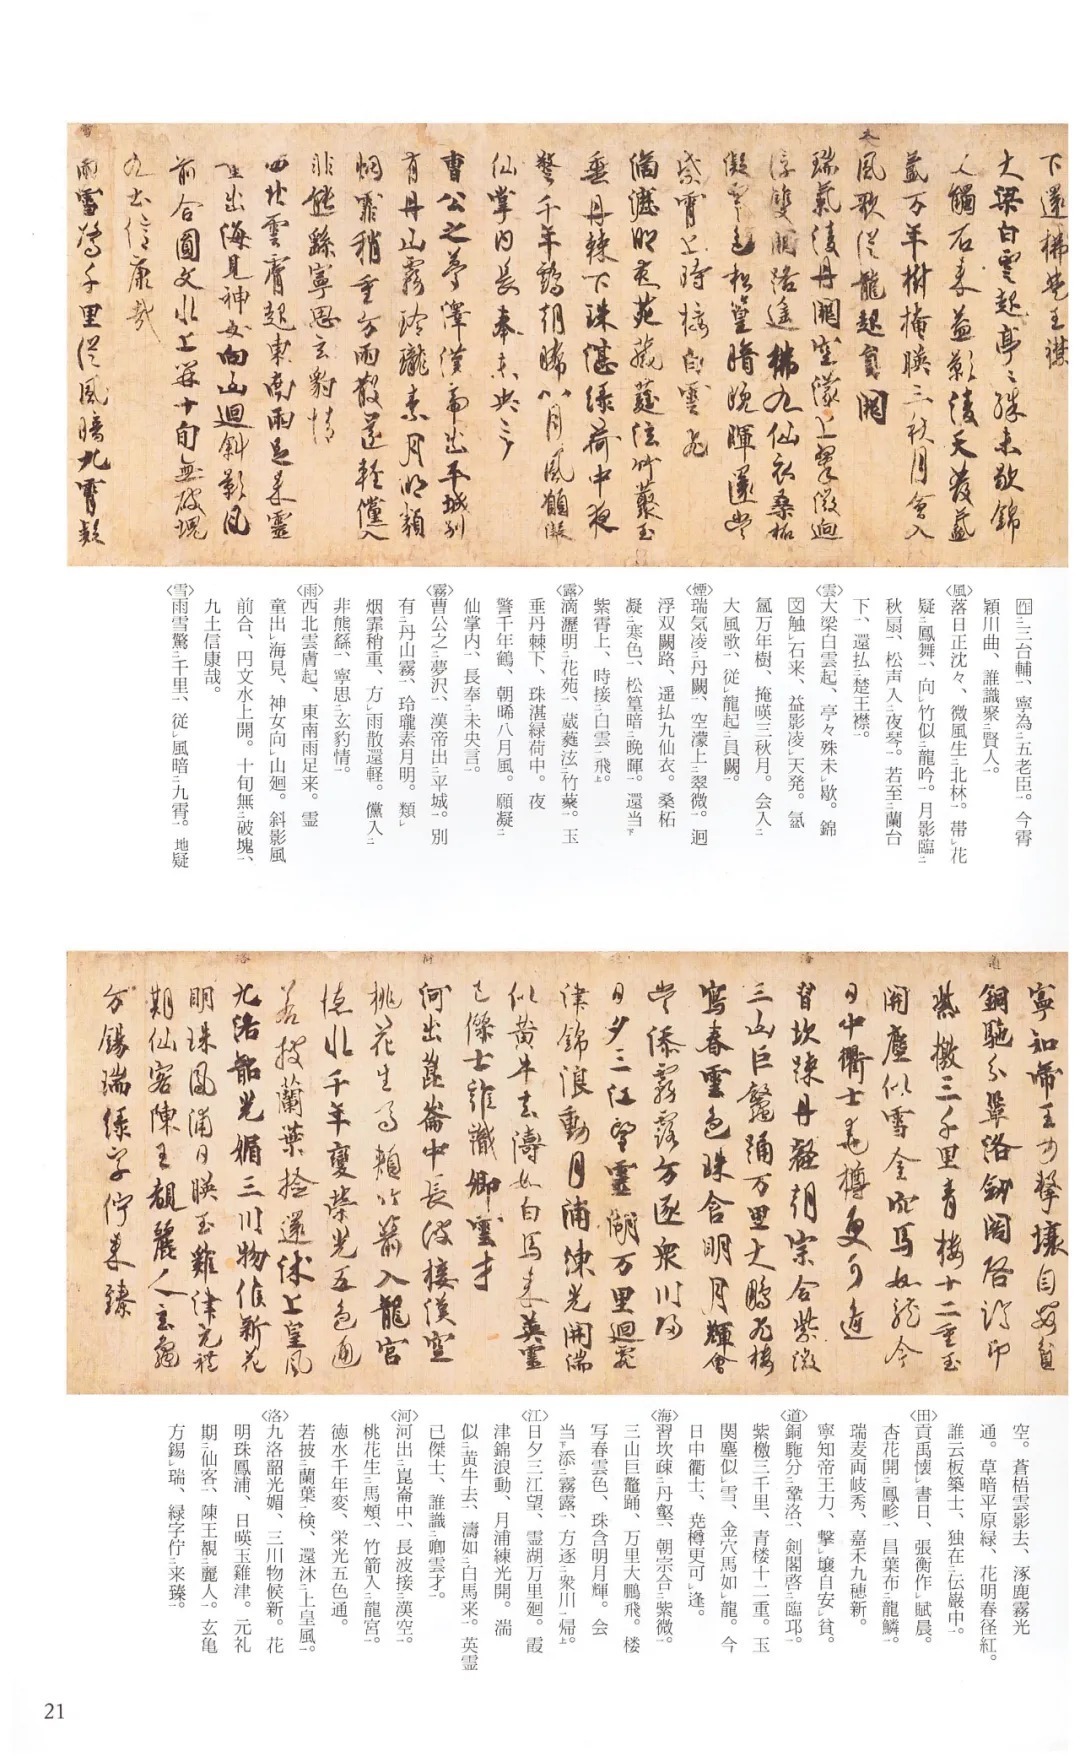 下還拂楚王襟
大梁白雲起亭々殊未歇錦
文觸石来益影凌天發氳
氳万年樹掩暎三秋月會入
大風歌従龍起員闕
瑞氣凌丹闕空濛上翠微迥
浮雙闕路遥拂九仙衣桑柘
凝寒色松篁暗晩暉還當
紫霄上時接白雲飛
滴瀝明花苑葳蕤泫竹叢玉
垂丹棘下珠湛緑荷中夜
警千年鶴朝晞八月風願凝
仙掌内長奉未央言
曹公之夢澤漢帝出平城別
有丹山霧玲瓏素月明類
烟霏稍重方雨散還輕儻入
非熊繇寧思玄豹情
西北雲膚起東南雨足来靈
童出海見神女向山迴斜影風
前合圓文水上開十旬無破塊
九土信康哉
雨雪驚千里従風暗九霄地疑
作三台輔、寧為五老臣。今霄
穎川曲、誰識聚賢人。
〈風〉落日正沈々、微風生北林。帯花
疑鳳舞、向竹似龍吟。月影臨
秋扇、松声入夜琴。若至蘭台
下、還払楚王襟。
〈雲〉大梁白雲起、亭々殊未歇。錦
文触石来、益影凌天発。氳
氳万年樹、掩暎三秋月。会入
大風歌、従龍起員闕。
〈煙〉瑞気凌丹闕、空濛上翠微。迥
浮双闕路、遥払九仙衣。桑柘
凝寒色、松篁暗晩暉。還当
紫霄上、時接白雲飛。
〈露〉滴瀝明花苑、葳蕤泫竹藂。玉
垂丹棘下、珠湛緑荷中。夜
警千年鶴、朝晞八月風。願凝
仙掌内、長奉未央言。
〈霧〉曹公之夢沢、漢帝出平城。別
有丹山霧、玲瓏素月明。類
烟霏稍重、方雨散還軽。儻入
非熊繇、寧思玄豹情。
〈雨〉西北雲膚起、東南雨足来。霊
童出海見、神女向山廻。斜影風
前合、円文水上開。十旬無破塊、
九土信康哉。
〈雪〉雨雪驚千里、従風暗九霄。地疑
寧知帝王力撃壤自安貧
銅馳分鞏洛劒閣啓臨卭
紫檄三千里青楼十二重玉
關塵似雪金穴馬如龍今
日中衢士尭樽更可逢
習坎疎丹壑朝宗合紫微
三山巨鼇踊万里大鵬飛楼
寫春雲色珠含明月輝會
當添霧露方逐衆川歸
日夕三江望靈湖万里迴霞
津錦浪動月浦練光開湍
似黄牛去濤如白馬来英靈
已傑士誰識卿雲才
河出崑崙中長波接漢空
桃花生馬頬竹箭入龍宮
徳水千年變榮光五色通
若披蘭葉檢還沐上皇風
九洛韶光媚三川物候新花
明珠鳳浦日暎玉雞津元礼
期仙客陳王覩麗人玄龜
方錫瑞緑字佇来臻
空。蒼梧雲影去、涿鹿霧光
通。草暗平原緑、花明春径紅。
誰云板築士、独在伝巌中。
〈田〉貢禹懐書日、張衡作賦晨。
杏花開鳳畛、昌葉布龍鱗。
瑞麦両岐秀、嘉禾九穂新。
寧知帝王力、撃壌自安貧。
〈道〉銅馳分鞏洛、剣閣啓臨邛。
紫檄三千里、青楼十二重。玉
関塵似雪、金穴馬如龍。今
日中衢士、尭樽更可逢。
〈海〉習坎疎丹壑、朝宗合紫微。
三山巨鼇踊、万里大鵬飛。楼
写春雲色、珠含明月輝。会
当添霧露、方逐衆川帰。
〈江〉日夕三江望、霊湖万里廻。霞
津錦浪動、月浦練光開。湍
似黄牛去、濤如白馬来。英霊
已傑士、誰識卿雲才。
〈河〉河出崑崙中、長波接漢空。
桃花生馬頬、竹箭入龍宮。
徳水千年変、栄光五色通。
若披蘭葉検、還沐上皇風。
〈洛〉九洛韶光媚、三川物候新。花
明珠鳳浦、日暎玉雞津。元礼
期仙客、陳王覩麗人。玄亀
方錫瑞、緑字佇来臻。
21